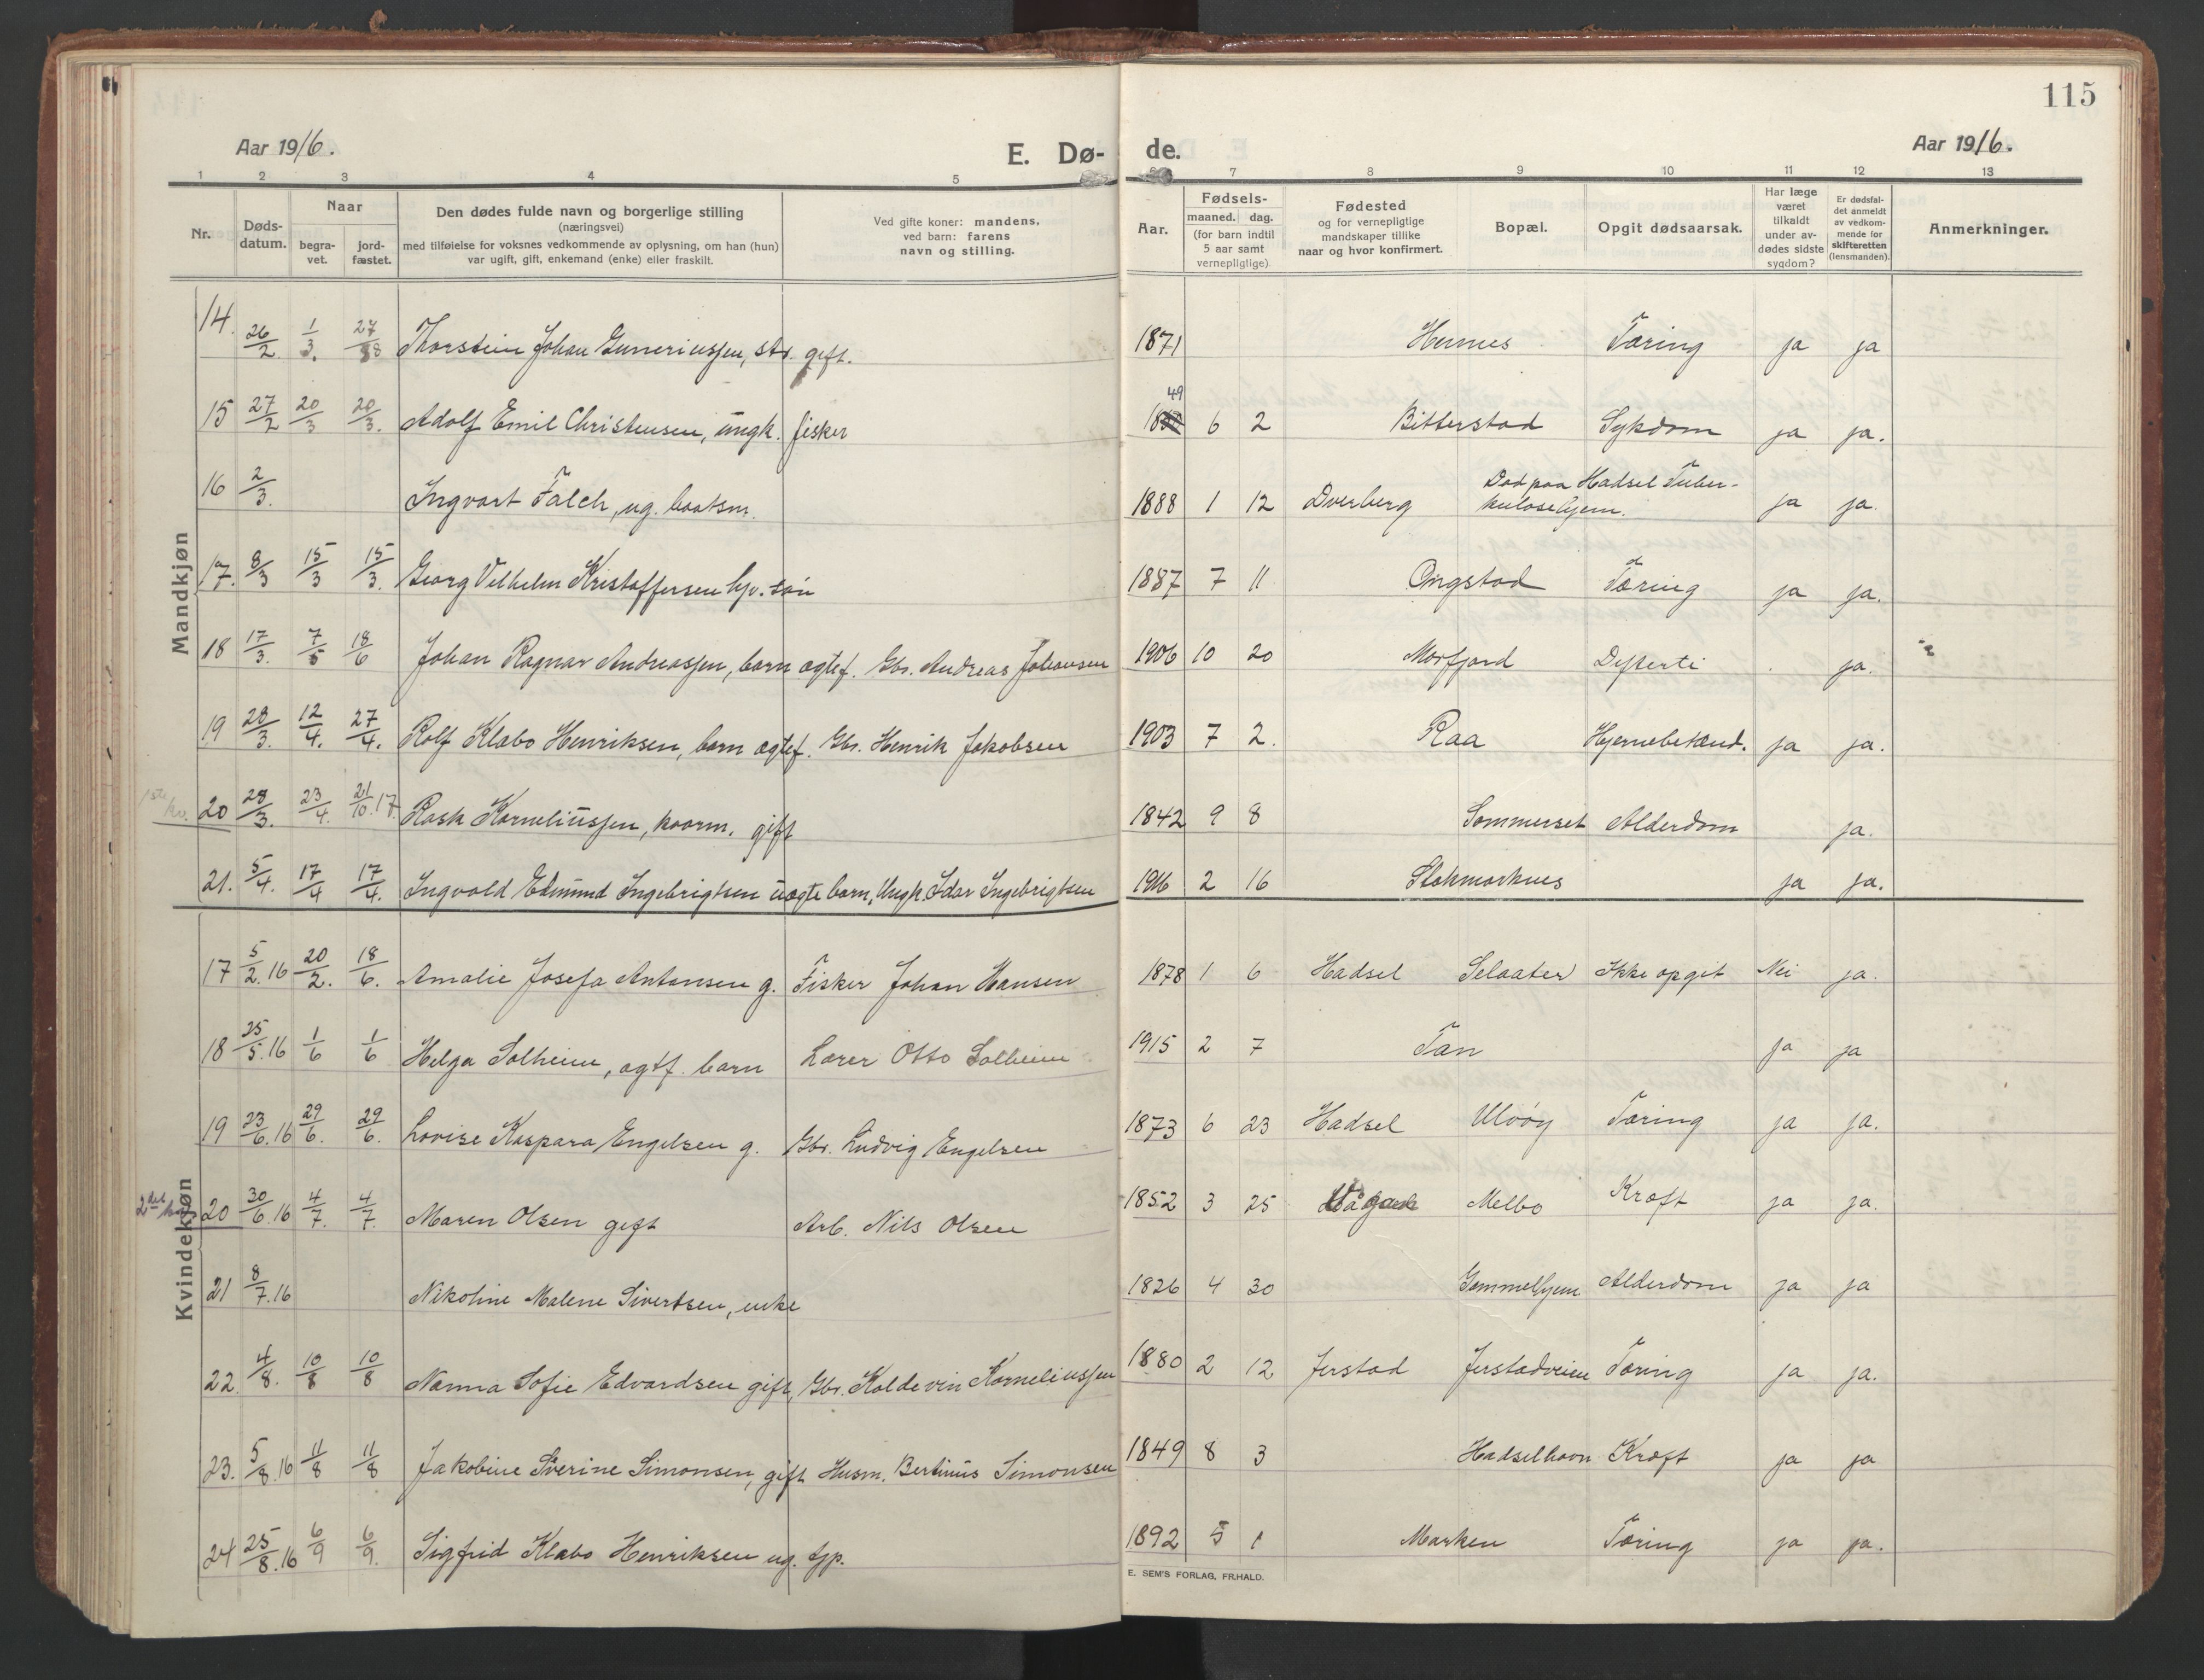 115
Aar 1916. E. Dø- de. Aar 1916.
1 2 3 4 5 7 8 9 10 11 12 13
Nr. Døds-datum. Naar begra-vet. jord-fæstet. Den dødes fulde navn og borgerlige stilling (næringsvei) med tilføielse for voksnes vedkommende av oplysning, om han (hun) var ugift, gift, enkemand (enke) eller fraskilt. Ved gifte koner: mandens, ved barn: farens navn og stilling. Aar. Fødsels- maaned. dag. (for barn indtil 5 aar samt vernepligtige) Fødested og for vernepligtige mandskaper tillike naar og hvor konfirmert. Bopæl. Opgit dødsaarsak. Har læge været tilkaldt under av-dødes sidste sygdom? Er dødsfal-det anmeldt av vedkom-mende for skifteretten (lensmanden). Anmerkninger.
Mandkjøn
14. 26/2 1/3. 27/8 Thorstein Johan Guneriussen, str. gift. 1871 Hernes Tæring ja ja
15 27/2 20/3 20/3. Adolf Emil Christensen, ungk. fisker 49 6 2 Bitterstad Sykdom ja ja.
16 2/3. Ingvart Falch, ug. baatsm. 1888 1 12 Dverberg Død paa Hadsel Tuber-
kulosehjem. ja ja.
17. 8/3 15/3 15/3. Georg Vilhelm Kristoffersen hjv. søn 1887 7 11 Ongstad Tæring ja ja.
18 17/3. 7/5 18/6 Johan Ragnar Andreassen, barn ægtef. Gbr. Andreas Johansen 1906 10 20 Morfjord Difterti ja.
19 28/3. 12/4. 27/4. Rolf Klæbo Henriksen, barn ægtef. Gbr. Henrik Jakobsen 1903 7 2. Raa Hjernebetænd. ja ja.
20 28/3. 23/4. 21/10.17. Rask Korneliussen, kaarm. gift 1842 9 8 Sommerset Alderdom ja.
21. 5/4. 17/4 17/4. Ingvald Edmund Ingebrigtsen uægte barn, Ungk. Idar Ingebrigtsen 1916 2 16 Stokmarknes ja ja.
Kvindekjøn
17 5/2.16 20/2. 18/6. Amalie Josefa Antonsen g. Fisker Johan Hansen 1878 1 6 Hadsel Selaater Ikke opgit Nei ja.
18 25/5.16 1/6 1/6 Helga Solheim, ægtf. barn Lærer Otto Solheim 1915 2 7 Tan ja ja
19 23/6.16 29/6. 29/6. Lovise Kaspara Engelsen g. Gbr. Ludvig Engelsen 1873 6 23 Hadsel Ulvøy Tæring ja ja.
20 30/6.16 4/7. 4/7. Maren Olsen gift Arb. Nils Olsen 1852 3 25 Melbo Kræft ja ja.
21 8/7.16 Nikoline Malene Sivertsen, enke 1826 4 30 Gammelhjem Alderdom ja ja
22. 4/8. 10/8 10/8 Nanna Sofie Edvardsen gift, Gbr. Koldevin Korneliussen 1880 2 12 Jerstad Jerstadveien Tæring ja ja.
23. 5/8.16 11/8 11/8 Jakobine Sverine Simonsen, gift Husm. Bertinus Simonsen 1849 8 3 Hadselhavn Kræft ja ja
24 25/8.16 6/9 6/9. Sigfrid Klæbo Henriksen ug. tjp. 1892 5 1 Marken Tæring ja ja.
E. SEM'S FORLAG, FR.HALD.